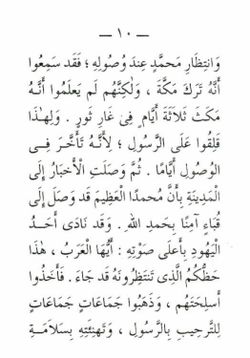 — ١٠ —
وَانْتِظَارِ مُحَمَّدٍ عِندَ وُصُولِهِ ؛ فَقَد سَمِعُوا
أَنَّهُ تَرَكَ مَكَّةَ ، وَلٰكِنَّهُم لَم يَعلَمُوا أَنَّـهُ
مَكَثَ ثَلَاثَةَ أَيَّامٍ فِي غَارِ ثَورٍ . وَلِهٰـذَا
قَلِقُوا عَلَى الرَّسُولِ ؛ لِأَنَّـهُ تَأَخَّـرَ فِـى
الوُصُولِ أَيَّامًا . ثُمَّ وَصَلَتِ الْأَخْبَارُ إِلَى
المَدِينَةِ بِأَنَّ مُحمدًا العَظِيمَ قَد وَصَلَ إِلَى
قُبَاءٍ آمِنًا بِحَمدِ اللهِ . وَقَد نَادَى أَحَــدُ
اليَهُودِ بِأَعلَى صَوْتِهِ : أَيُّهَا العَرَبُ ، هٰذَا
حَظُّكُمُ الَّذِى تَنتَظِرُونَهُ قَد جَاءَ . فَأَخَذُوا
أَسلِحَتَهُم ، وَذَهَبُوا جَمَاعَاتٍ جَمَاعَاتٍ
لِلتَّرحِيبِ بِالرَّسُولِ ، وَتَهنِئَتِهِ بِسَلَامَـةِ